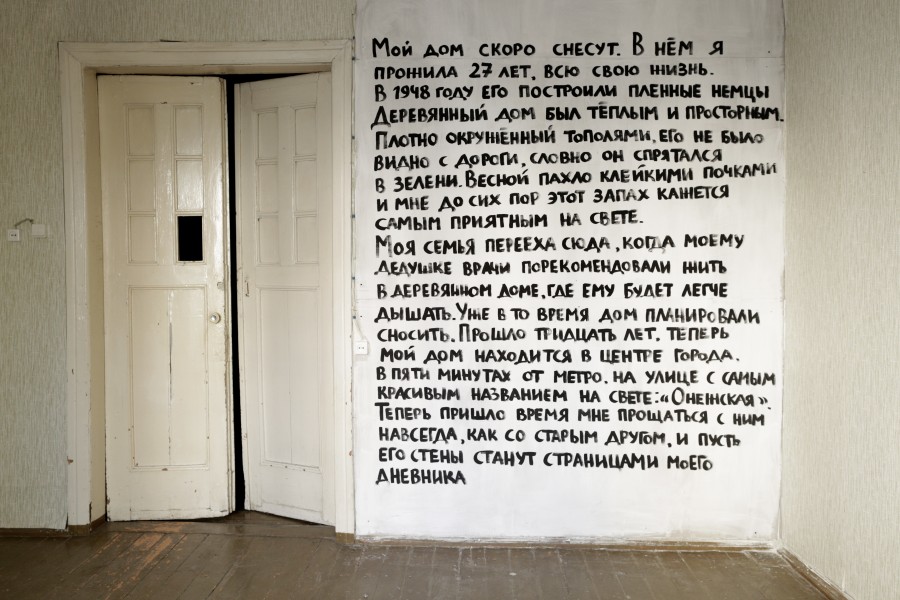 Мой дом скоро снесут. В нём я
прожила 27 лет, всю свою жизнь.
В 1948 году его построили пленные немцы
Деревянный дом был тёплым и просторным.
Плотно окружённый тополями, его не было
видно с дороги, словно он спрятался
в зелени. Весной пахло клейкими почками
и мне до сих пор этот запах кажется
самым приятным на свете.
Моя семья перееха сюда, когда моему
дедушке врачи порекомендовали жить
в деревянном доме, где ему будет легче
дышать. Уже в то время дом планировали
сносить. Прошло тридцать лет. Теперь
мой дом находится в центре города.
В пяти минутах от метро. На улице с самым
красивым названием на свете: «Онежская».
Теперь пришло время мне прощаться с ним
навсегда, как со старым другом, и пусть
его стены станут страницами моего
дневника